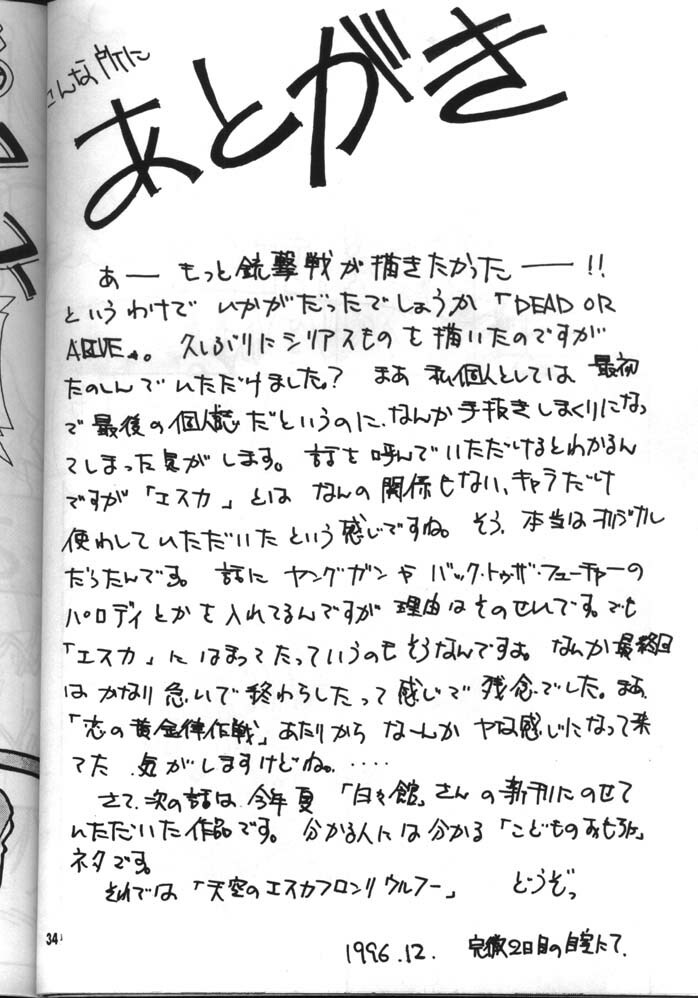 こんな所に
あとがき
あー もっと銃撃戦が描きたかったー!!
というわけで いかがだったでしょうか「DEAD OR
ALIVE」。 久しぶりにシリアスものを描いたのですが
たのしんでいただけました? まあ 私個人としては 最初
で最後の個人誌だというのに、なんか手抜きしまくりになっ
てしまった気がします。話を呼んでいただけるとわかるん
ですが「エスカ」とは なんの関係もない、キャラだけ
使わしていただいたという感じですね。そう、本当はオリジナル
だったんです。 話に ヤングガンや バック・トゥ・ザ・フューチャーの
パロディとかを入れてるんですが 理由はそのせいです。でも
「エスカ」にはまってたっていうのもそうなんですよ。なんか最終回
は かなり急いで終わらしたって感じで残念でした。まあ
「恋の黄金律作戦」あたりから なーんか ヤな感じになって来
てた 気がしますけどね。‥‥
さて、次の話は 今年夏 「白々館」さんの新刊にのせて
いただいた作品です。 分かる人には分かる「こどものおもちゃ」
ネタです。
それでは「天空のエスカフロンリウルフー」 どうぞっ
34
1996.12. 完徹2日目の自室にて.